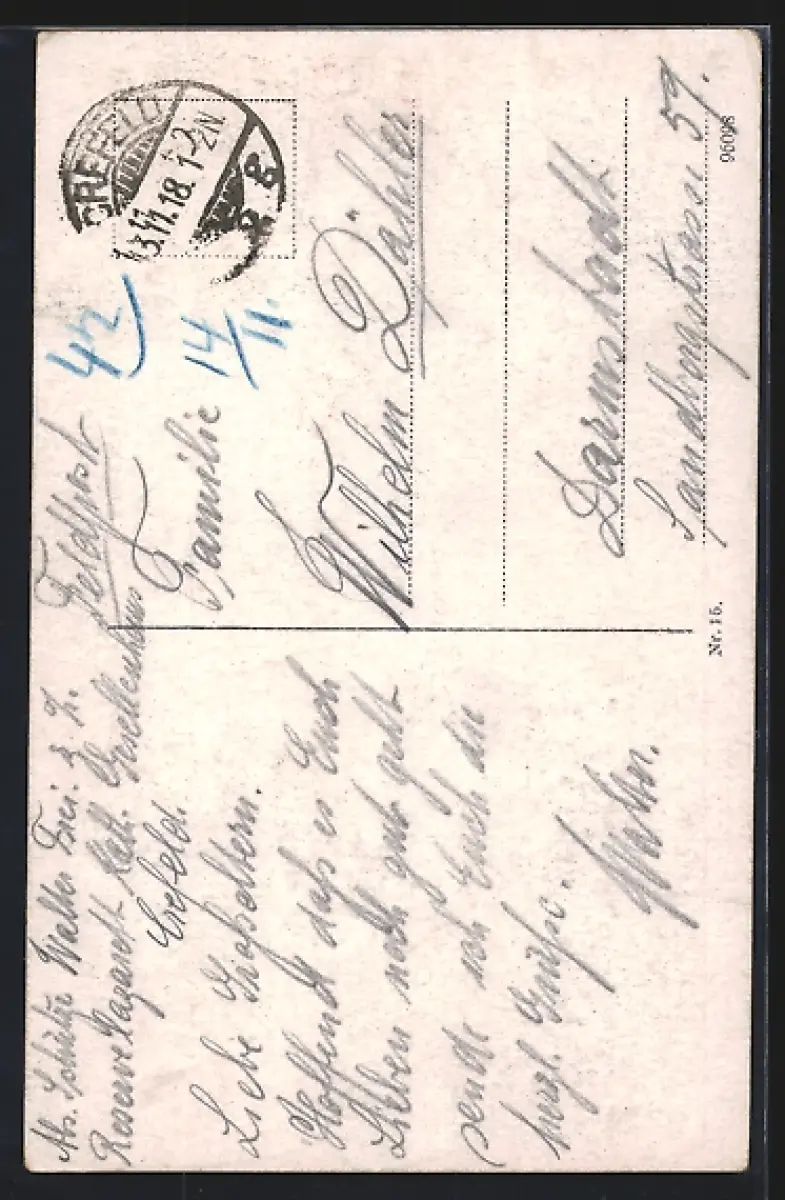 Abs. Schütze Walter Frei. z. Z.
Reserve Lazarett Kath. Gesellenhaus
Crefeld.
Liebe Großeltern.
Hoffend daß es Euch
Lieben noch gut geht
sende ich Euch die
herzl. Grüße.
Walter.
Feldpost
CREFELD
13.11.18. 1-2N
* 2 g.
42
14/11.
Familie
Wilhelm Dähler
Darmstadt
Sandbergstrasse 59.
Nr. 15.
96098